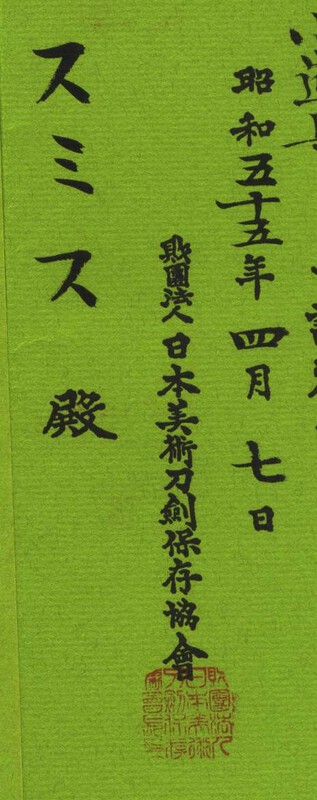 昭和五十五年四月七日
財團法人日本美術刀劍保存協會
スミス殿